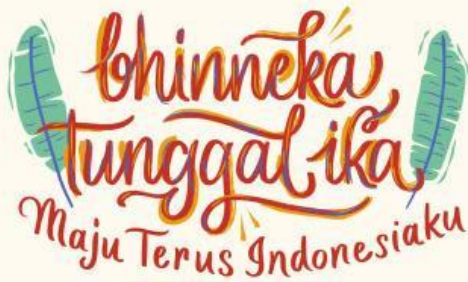 bhinneka
tunggal ika
Maju Terus Indonesiaku